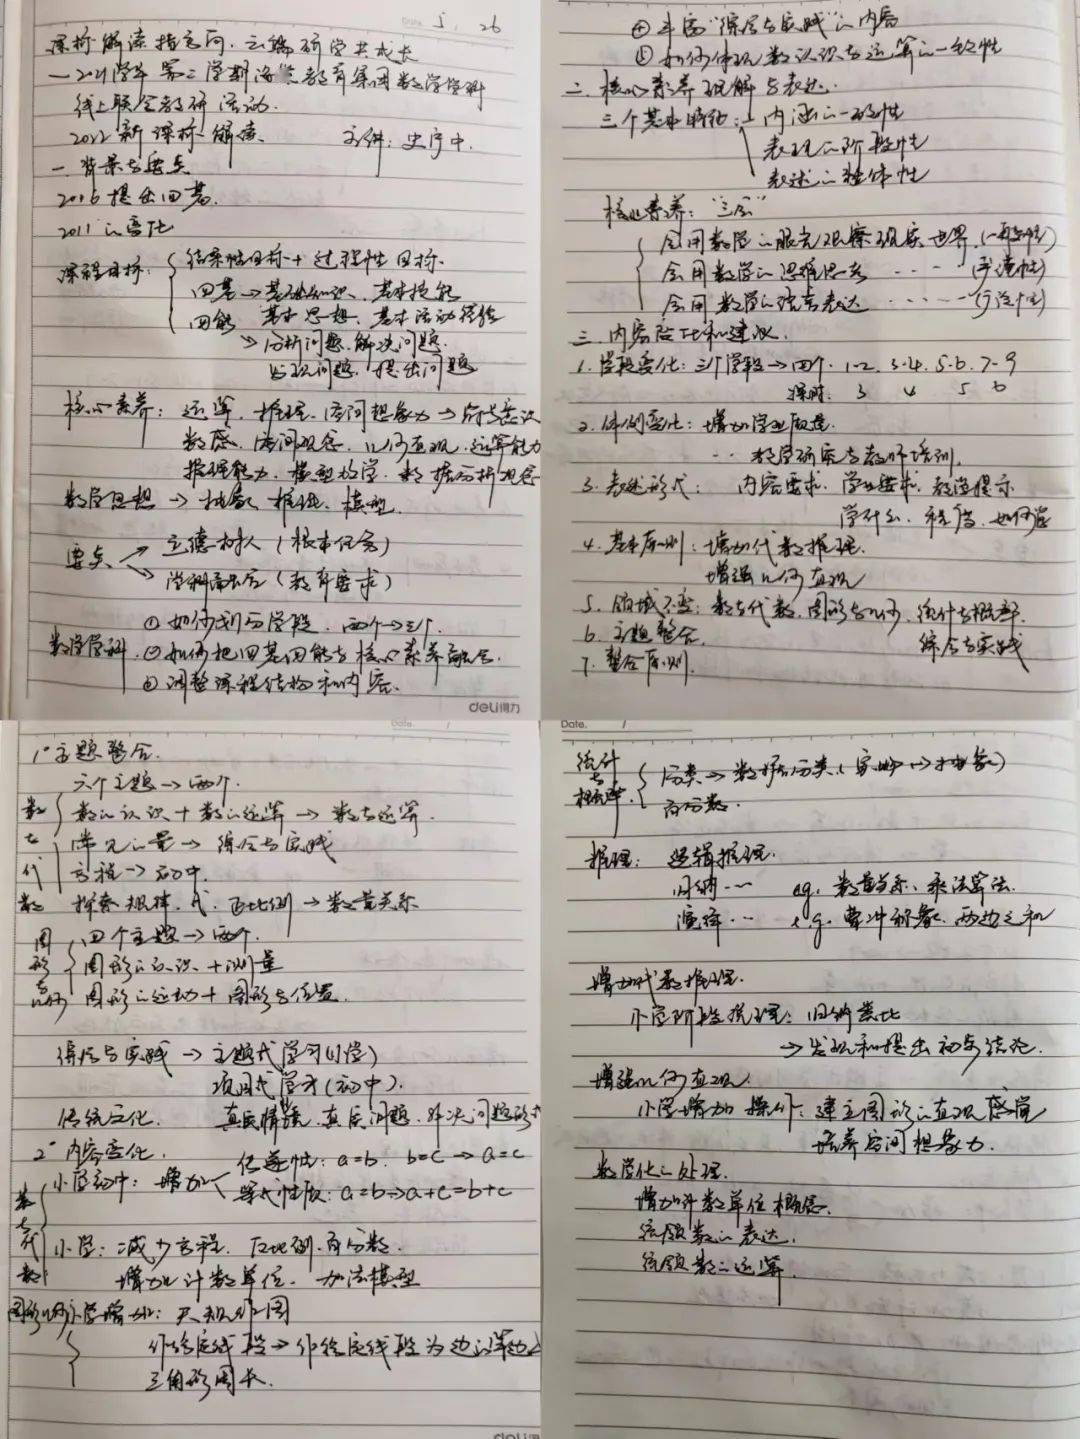 5. 26
课标解读指方向,云端研学共成长
—2021学年第二学期海 教育集团数学学科
线上联合教研活动.
2022新课标解读 主讲:史宁中.
一.背景与要点
2016提出四基.
2011的变化
课程目标: 结果性目标+过程性目标.
四基→基础知识、基本技能
基本思想、基本活动经验
四能
→分析问题.解决问题.
发现问题.提出问题
核心素养: 运算、推理、空间想象力→符号意识
数感、空间观念、几何直观、运算能力
推理能力、模型 、数据分析观念
数学思想→抽象、推理、模型.
要点 立德树人(根本任务)
学科育人(教育要求)
①如何划分学段. 两个→三个.
数学学科.②如何把四基四能与核心素养融合.
③调整课程结构和内容.
deli得力
④丰富“综合与实践”的内容
⑤如何体现数认识与运算的一致性
二、核心素养理解与表达.
三个基本特征: 内涵的一致性
表现的阶段性
表述的整体性
核心素养:“三会”
会用数学的眼光观察现实世界.(一般性)
会用数学的思维思考 ····(严谨性)
会用数学的语言表达 ······(广泛性)
三.内容 比和建议.
1.学段变化:三个学段→四个. 1-2. 3-4. 5-6. 7-9
课时: 3 4 5 6
2.体例变化:增加学业质量.
·· 教学研究与教师培训.
3.表述形式: 内容要求、学业要求、教学提示
学什么、 、如何学
4.基本原则:增加代数推理.
增强几何直观
5.领域不变:数与代数、图形与几何、统计与概率.
综合与实践
6.主题整合.
7.整合原则.
1°主题整合.
六个主题→两个.
数与代数 数的认识+数的运算→数与运算.
常见的量→综合与实践
方程→初中.
探索规律、式、正比例→数量关系
图形与几何 四个主题→两个.
图形的认识+测量
图形的运动+图形与位置.
综合与实践→主题式学习(小学)
项目式学习(初中).
传统文化. 真实情境、真实问题、解决问题
2°内容变化.
数与代数 小学初中:增加 传递性:a=b. b=c→a=c
等式性质:a=b→a+c=b+c
小学:减少方程、反比例、百分数.
增加计数单位、加法模型
图形几何小学增加:尺规作图
作给定线段→作给定线段为边的等边△
三角形周长.
Date. /
统计与概率 分类→数据分类(实物→抽象)
百分数.
推理: 逻辑推理.
归纳··· eg.数量关系、乘法算法.
演绎··· e.g. 对称象、两边之和
增加代数推理.
小学阶段推理:归纳类比
→发现和提出初步结论.
增强几何直观.
小学增加操作:建立图形的直观感觉
培养空间想象力.
数学化的处理.
增加计数单位概念.
统领数的表达.
统领数的运算.
deli得